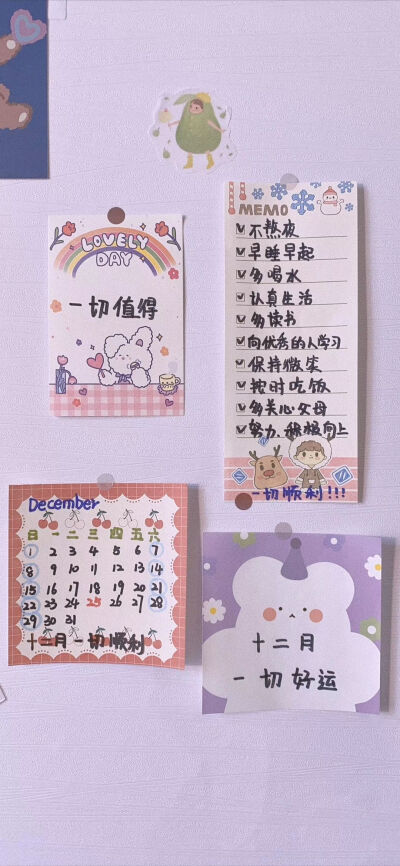 LOVELY
DAY
一切值得
MEMO
不熬夜
早睡早起
多喝水
认真生活
多读书
向优秀的人学习
保持微笑
按时吃饭
多关心父母
努力、积极向上
一切顺利!!!
December
日 一 二 三 四 五 六
1 2 3 4 5 6 7
8 9 10 11 12 13 14
15 16 17 18 19 20 21
22 23 24 25 26 27 28
29 30 31
十二月一切顺利
十二月
一切好运